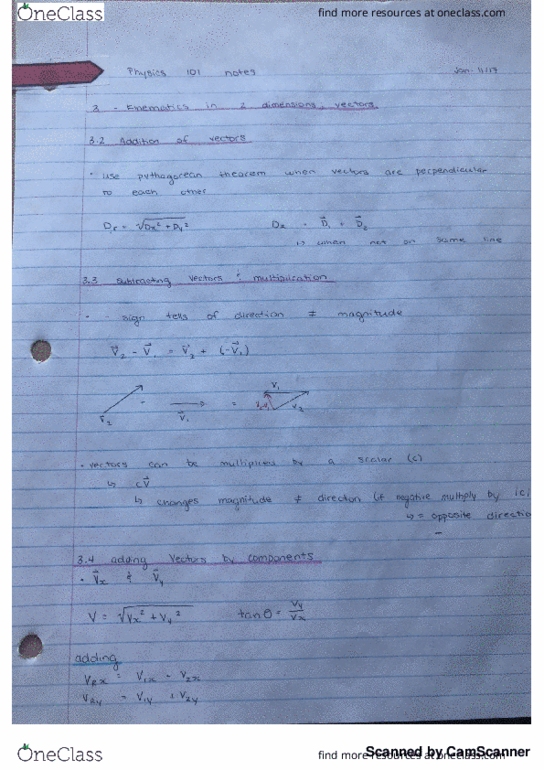 OneClass
find more resources at oneclass.com
Physics 101 notes
3 - Kinematics in 2 dimensions, vectors
3.2 Addition of vectors
• use pythagorean theorem when vectors are perpendicular
to each other
Dr = √Dx² + Dy²
↳ when not on same line
3.3 Subtracting vectors & multiplication
• - sign tells of direction ≠ magnitude
V⃗₂ - V⃗₁ = V⃗₂ + (-V⃗₁)
V⃗₂ - V⃗₁ = V₁ V₂
• vectors can be multiplied by a scalar (c)
↳ cV⃗
↳ changes magnitude ≠ direction (if negative multiply by |c|
↳ = opposite directio
3.4 adding vectors by components
• V⃗x & V⃗y
V = √Vx² + Vy² tanθ = Vy/Vx
adding
VRx = V1x + V2x
VRy = V1y + V2y
OneClass
find more resources at oneclass.com
Scanned by CamScanner